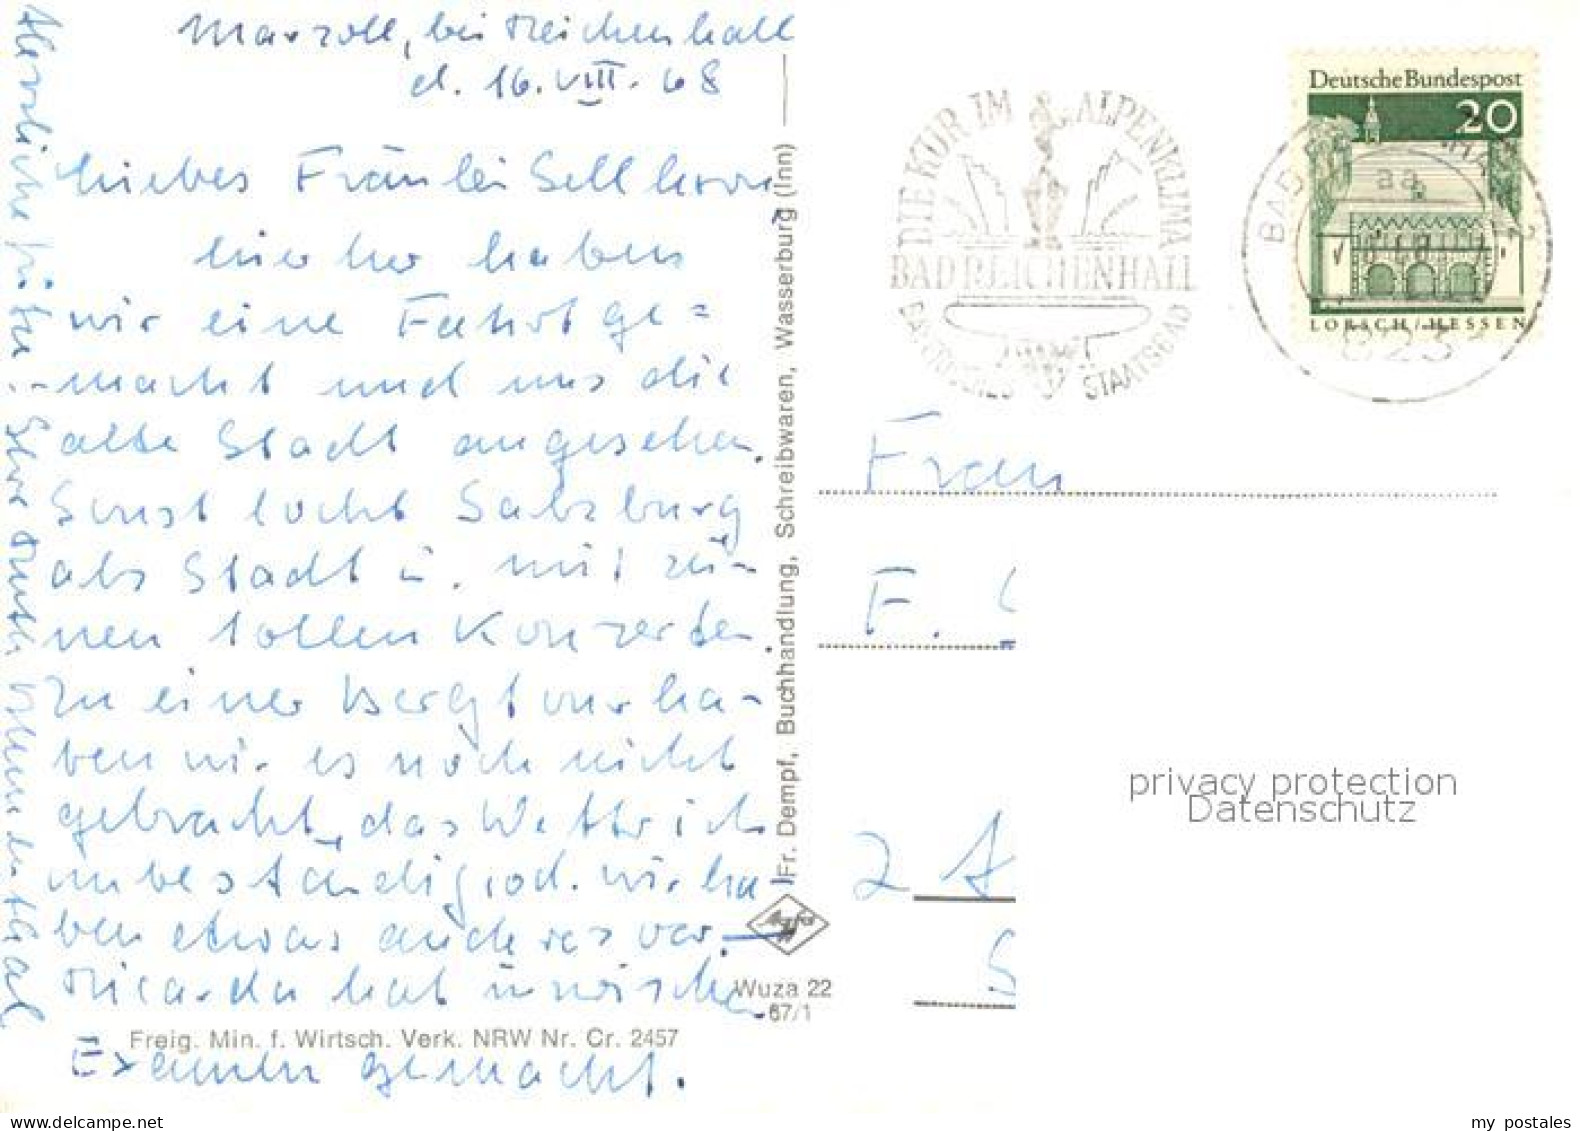 Marzoll, bei Reichenhall
d. 16. VIII. 68
Liebes Fräulein Sellhorn
Hierher haben
wir eine Fahrt ge=
macht und uns die
alte Stadt angesehen.
Sonst lockt Salzburg
als Stadt u. mit
nen tollen Konzerten.
Zu einer Bergtour ha-
ben wir es noch nicht
gebracht, das Wetter ist
unbeständig, od. wir ha
ben etwas anderes vor.
Ricarda hat inzwischen
Examen gemacht.
Herzliche Grüße
Ihre Ruth
Fr. Dempf, Buchhandlung, Schreibwaren, Wasserburg (Inn)
Agfa
Wuza 22
67/1
Freig. Min. f. Wirtsch. Verk. NRW Nr. Cr. 2457
DIE KUR IM ALPENKLIMA
BAD REICHENHALL
BAYERISCHES STAATSBAD
Deutsche Bundespost
20
LORSCH/HESSEN
BAD
aa
823
Frau
F.
2
S
privacy protection
Datenschutz
my postales